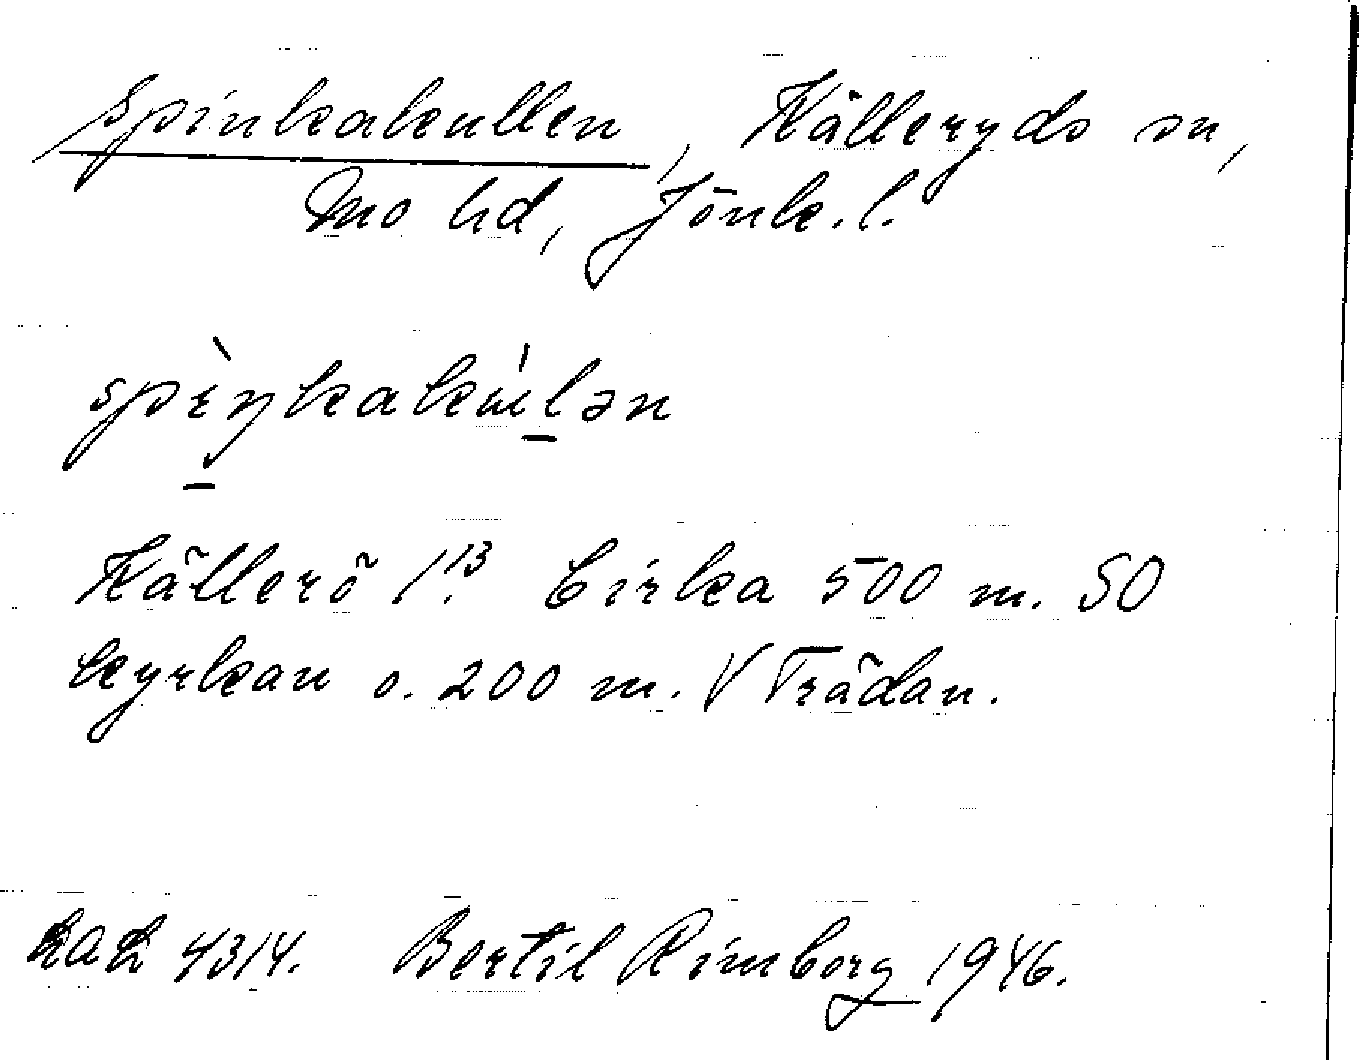 Spinkakullen, Kålleryds sn,
Mo hd, Jönk.l.
spɪ̀ŋkakúlən
Källerö 1¹³. Cirka 500 m. SO
kyrkan o. 200 m. V Trådan.
kak 4314. Bertil Rimborg 1946.